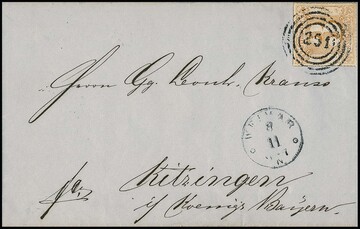 251
Herrn Gg. Leonh. Krauss
WEIMAR
8
11
fr.
Kitzingen
i/ Koenigr. Bayern.